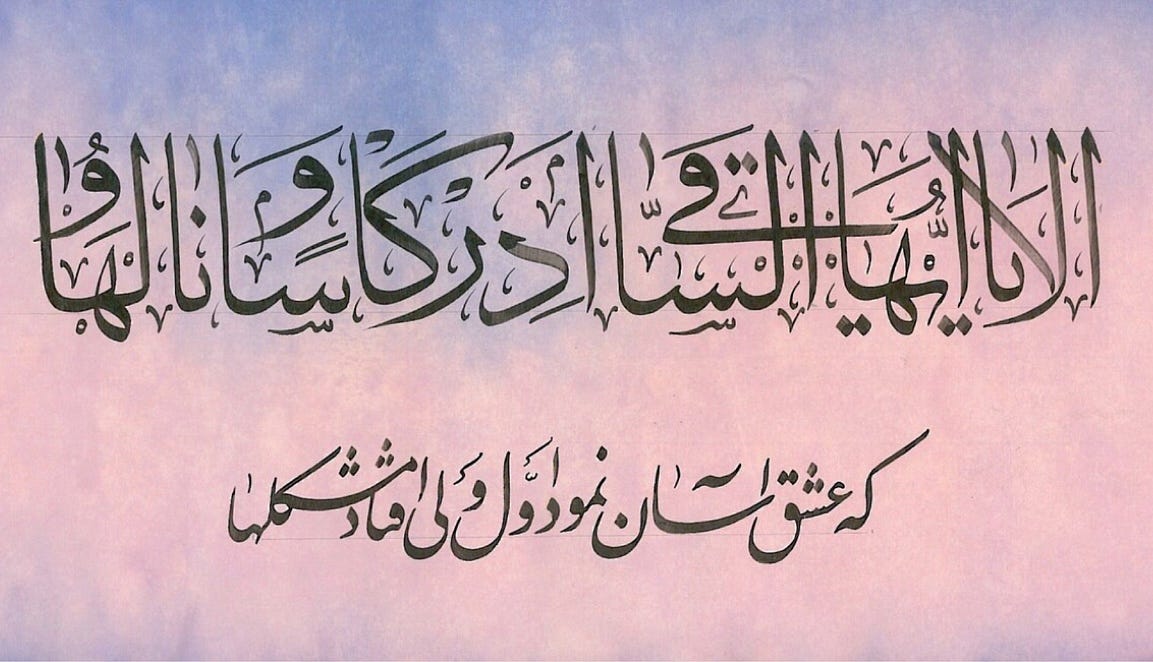 اَلا یا اَیُّهَا السّاقی اَدِرْ کَاْسًا وَ ناوِلْها
که عشق آسان نمود اوّل ولی افتاد مشکلها